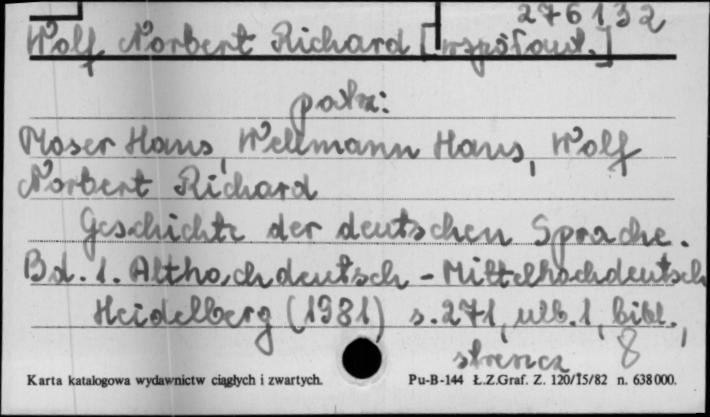 276132
Wolf Norbert Richard [współaut.]
patrz:
Moser Hans, Wellmann Hans, Wolf
Norbert Richard
Geschichte der deutschen Sprache.
Bd. 1. Althochdeutsch - Mittelhochdeutsch
Heidelberg (1981) s. 271, ulb. 1, bibl.,
streszcz 8
Karta katalogowa wydawnictw ciągłych i zwartych. Pu-B-144 Ł.Z.Graf. Z. 120/15/82 n. 638000.